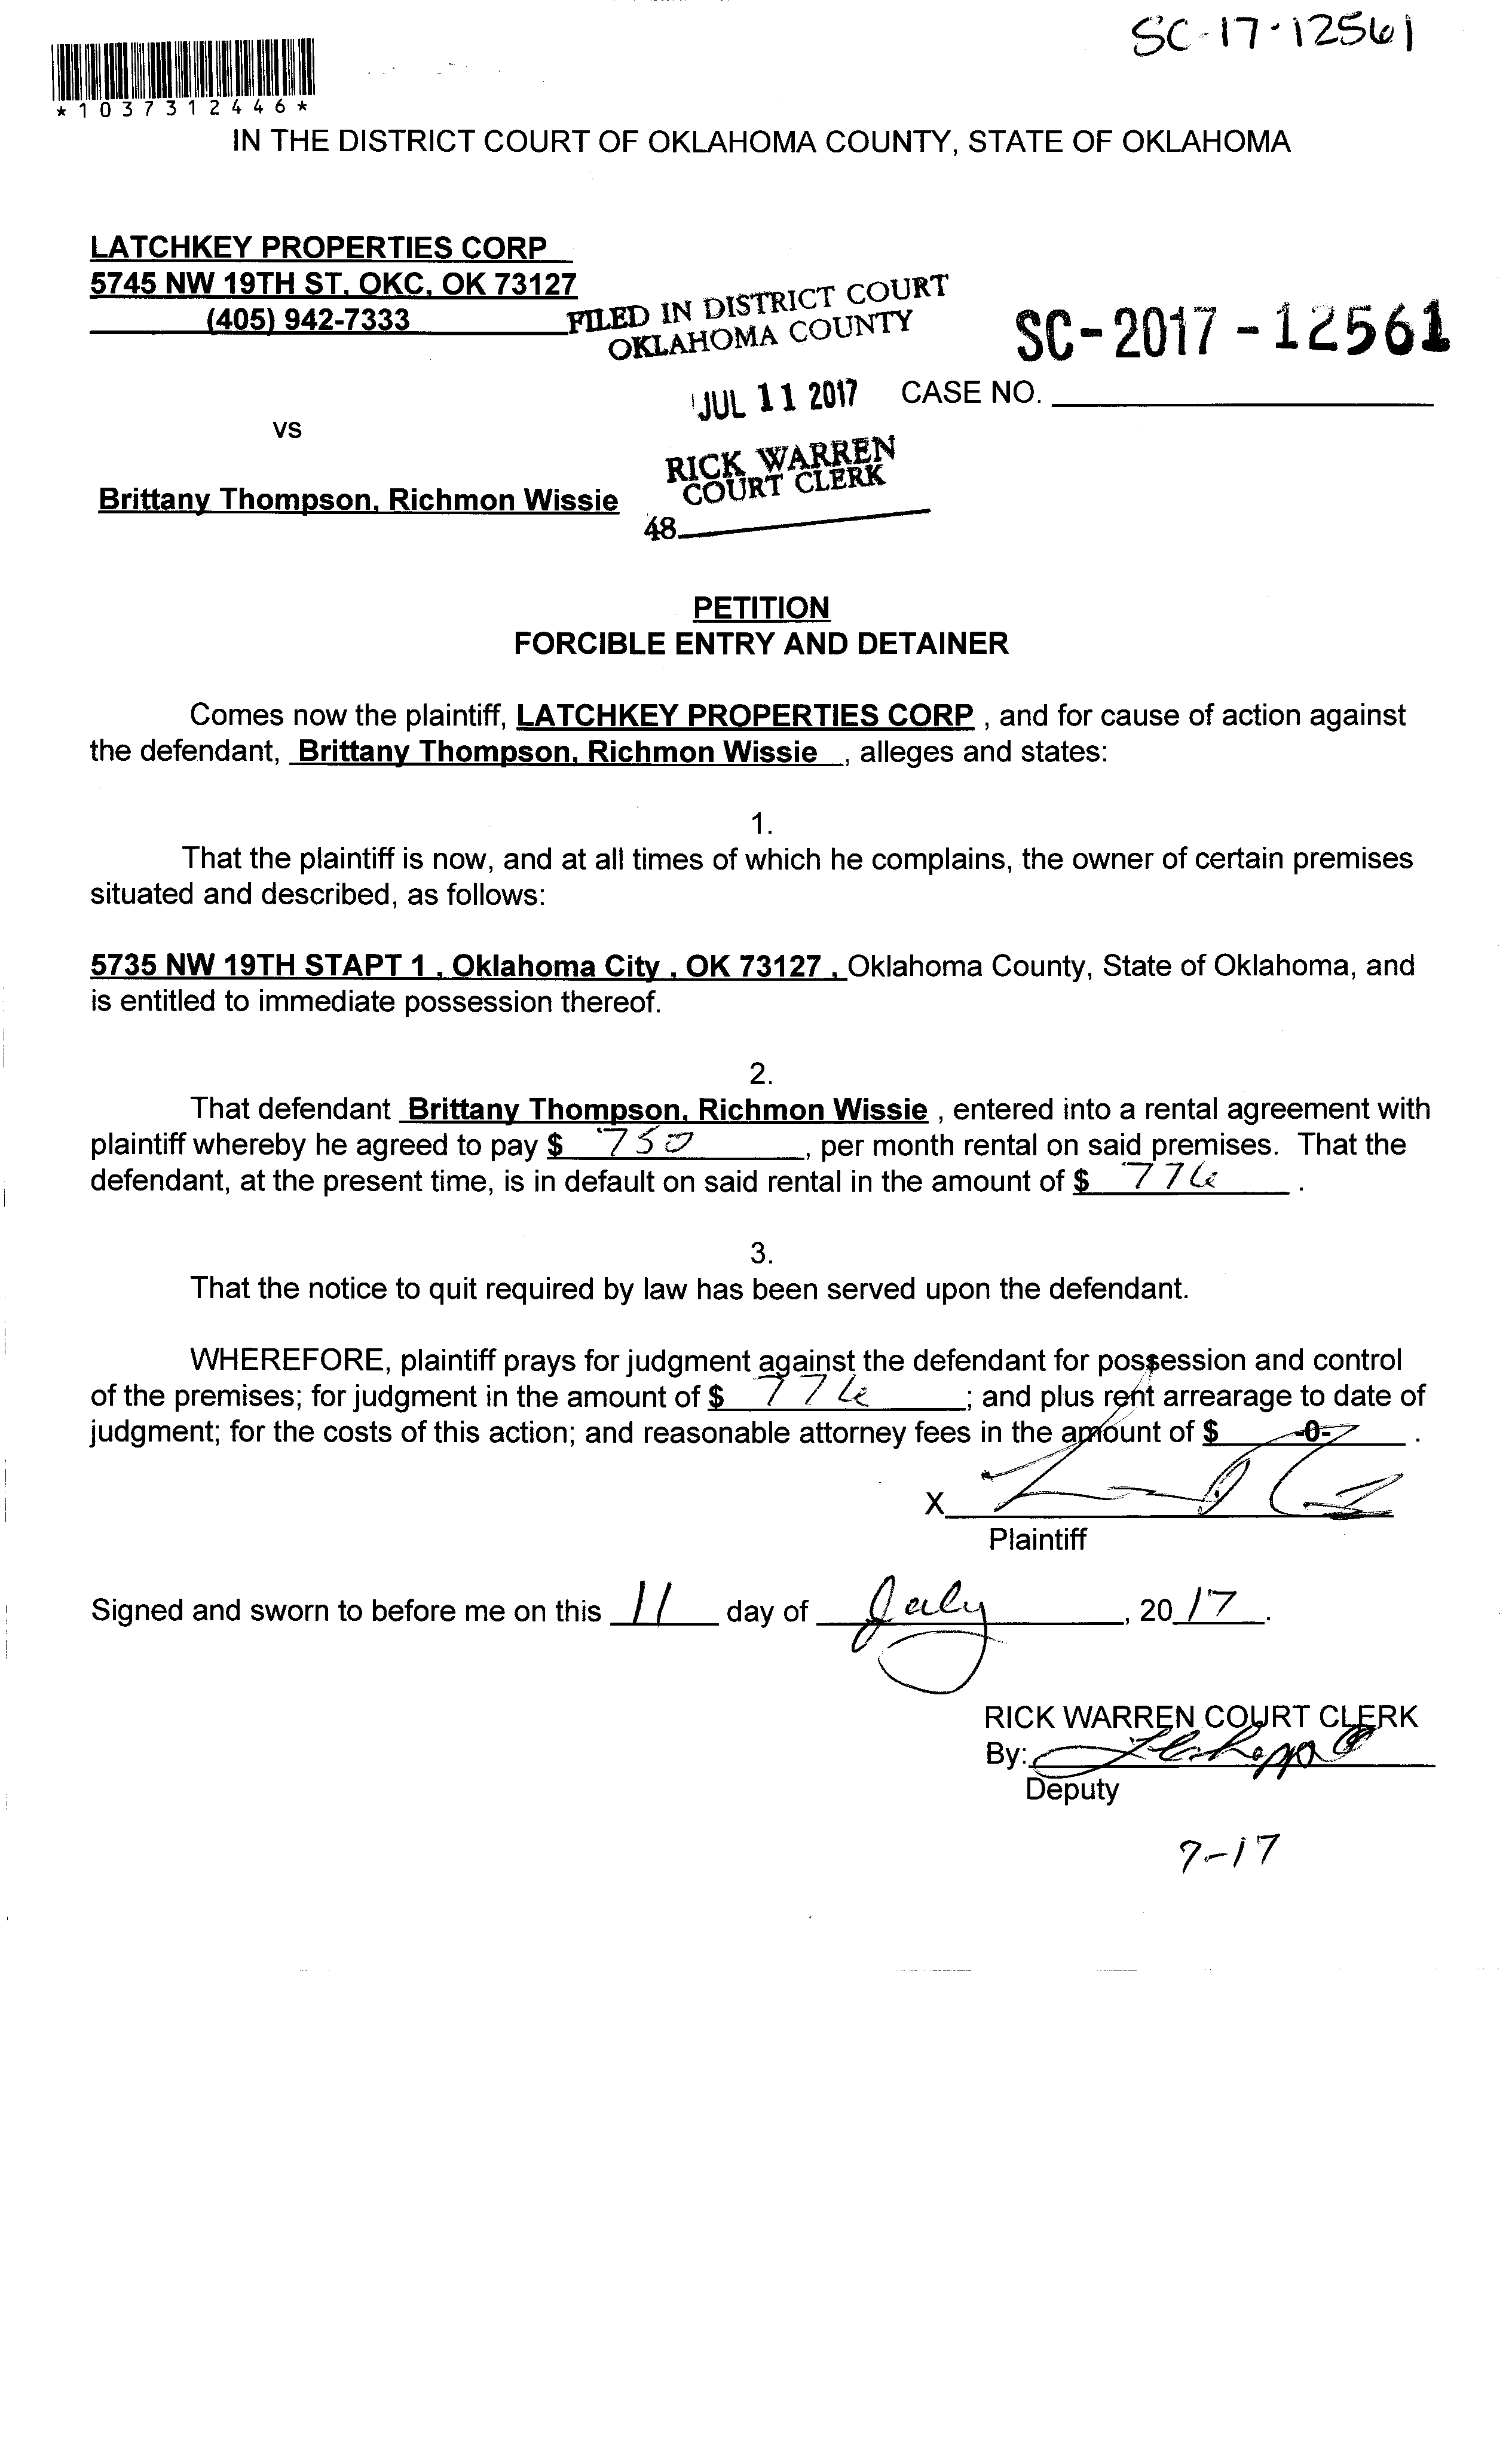 SC-17-12561
*1037312446*
IN THE DISTRICT COURT OF OKLAHOMA COUNTY, STATE OF OKLAHOMA
LATCHKEY PROPERTIES CORP
5745 NW 19TH ST, OKC, OK 73127
(405) 942-7333
FILED IN DISTRICT COURT
OKLAHOMA COUNTY
SC-2017-12561
JUL 11 2017
CASE NO.
vs
RICK WARREN
COURT CLERK
Brittany Thompson, Richmon Wissie
48
PETITION
FORCIBLE ENTRY AND DETAINER
Comes now the plaintiff, LATCHKEY PROPERTIES CORP , and for cause of action against
the defendant, Brittany Thompson, Richmon Wissie , alleges and states:
1.
That the plaintiff is now, and at all times of which he complains, the owner of certain premises
situated and described, as follows:
5735 NW 19TH STAPT 1 , Oklahoma City , OK 73127 , Oklahoma County, State of Oklahoma, and
is entitled to immediate possession thereof.
2.
That defendant Brittany Thompson, Richmon Wissie , entered into a rental agreement with
plaintiff whereby he agreed to pay $ 750 , per month rental on said premises. That the
defendant, at the present time, is in default on said rental in the amount of $ 776 .
3.
That the notice to quit required by law has been served upon the defendant.
WHEREFORE, plaintiff prays for judgment against the defendant for possession and control
of the premises; for judgment in the amount of $ 776 ; and plus rent arrearage to date of
judgment; for the costs of this action; and reasonable attorney fees in the amount of $ -0- .
X
Plaintiff
Signed and sworn to before me on this 11 day of July , 20 17 .
RICK WARREN COURT CLERK
By:
Deputy
7-17